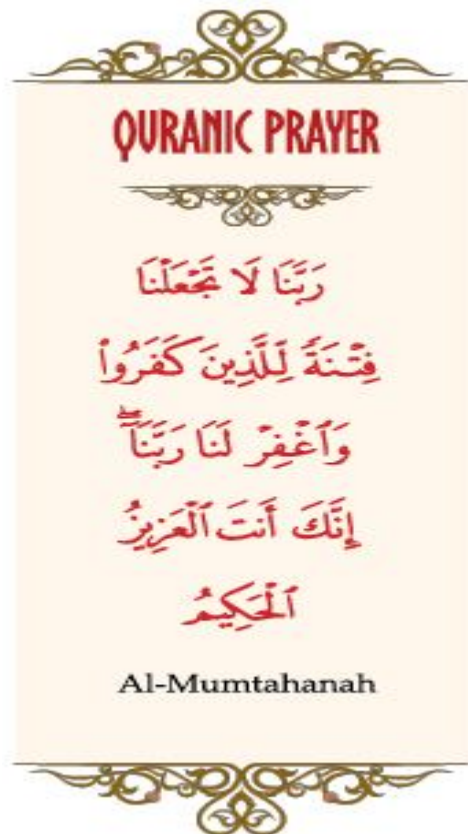 QURANIC PRAYER
رَبَّنَا لَا تَجْعَلْنَا
فِتْنَةً لِّلَّذِينَ كَفَرُوا۟
وَٱغْفِرْ لَنَا رَبَّنَآ ۖ
إِنَّكَ أَنتَ ٱلْعَزِيزُ
ٱلْحَكِيمُ
Al-Mumtahanah